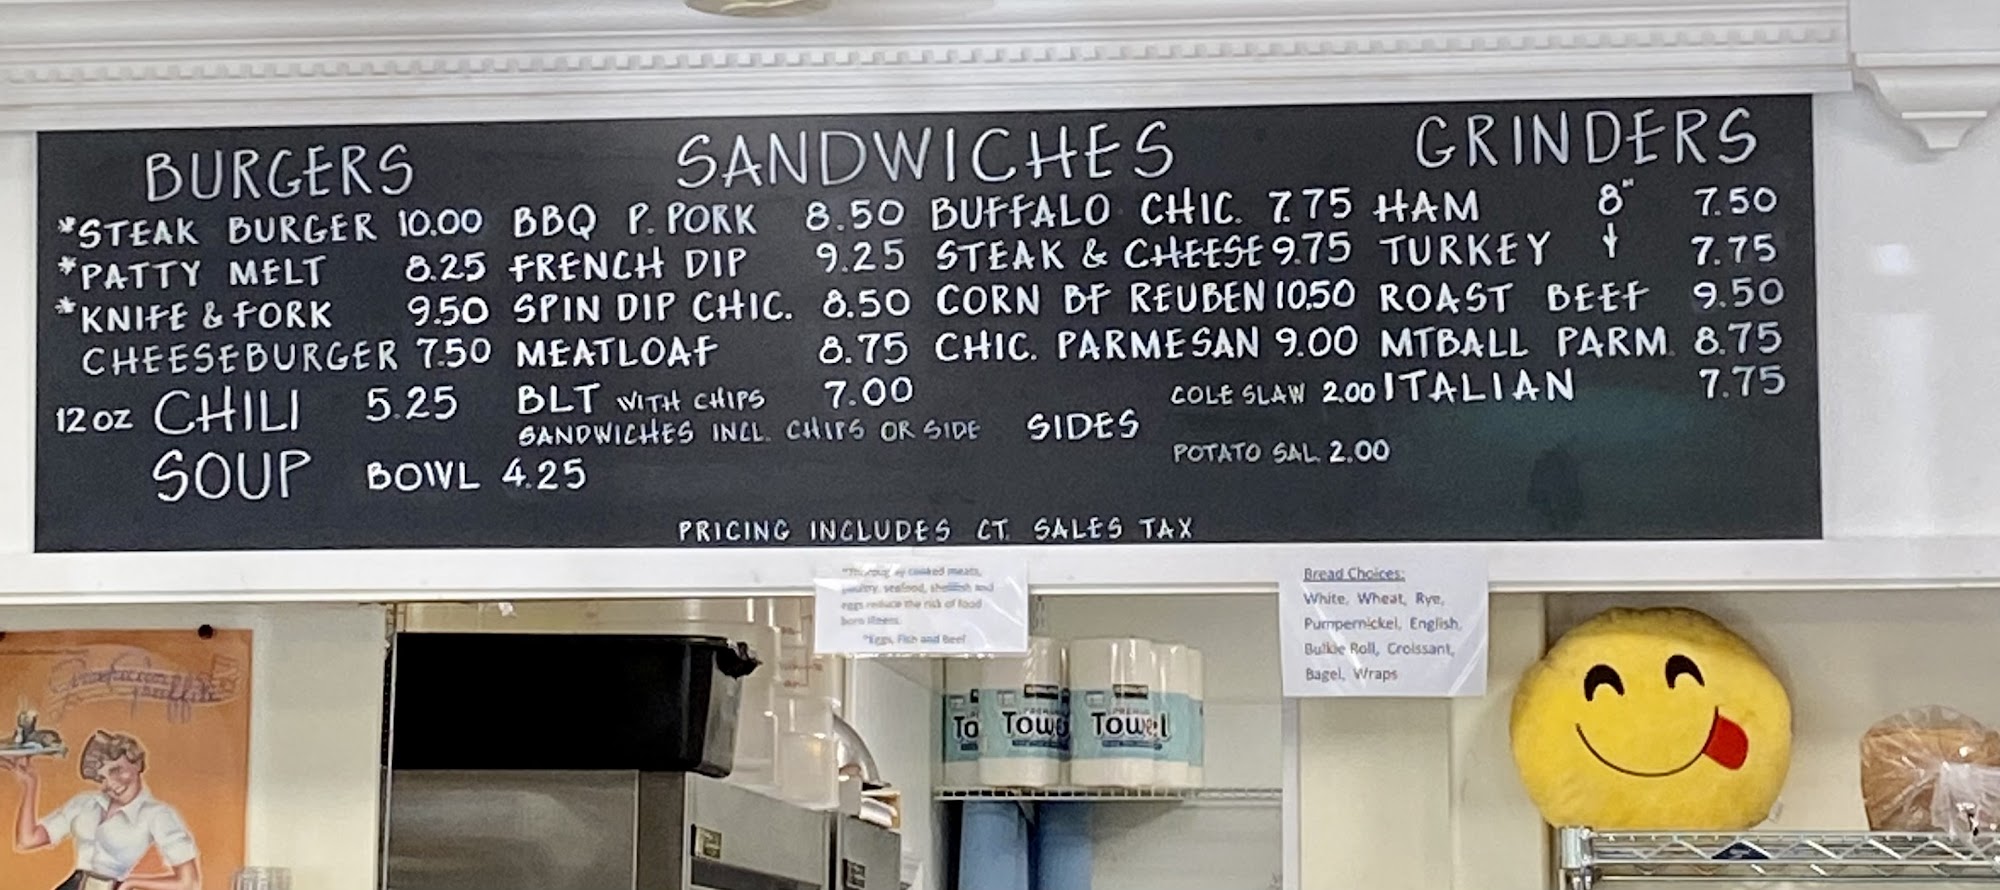 BURGERS
*STEAK BURGER 10.00
*PATTY MELT 8.25
*KNIFE & FORK 9.50
CHEESEBURGER 7.50
12 oz CHILI 5.25
SOUP BOWL 4.25
SANDWICHES
BBQ P. PORK 8.50
FRENCH DIP 9.25
SPIN DIP CHIC. 8.50
MEATLOAF 8.75
BLT WITH CHIPS 7.00
SANDWICHES INCL. CHIPS OR SIDE
BUFFALO CHIC. 7.75
STEAK & CHEESE 9.75
CORN BF REUBEN 10.50
CHIC. PARMESAN 9.00
SIDES
COLE SLAW 2.00
POTATO SAL. 2.00
GRINDERS
HAM 8" 7.50
TURKEY 7.75
ROAST BEEF 9.50
MTBALL PARM. 8.75
ITALIAN 7.75
PRICING INCLUDES CT. SALES TAX
cooked meats,
poultry, seafood, shellfish and
eggs reduce the risk of food
born illness.
*Eggs, Fish and Beef
Bread Choices:
White, Wheat, Rye,
Pumpernickel, English,
Bulkie Roll, Croissant,
Bagel, Wraps
Towel
Towel